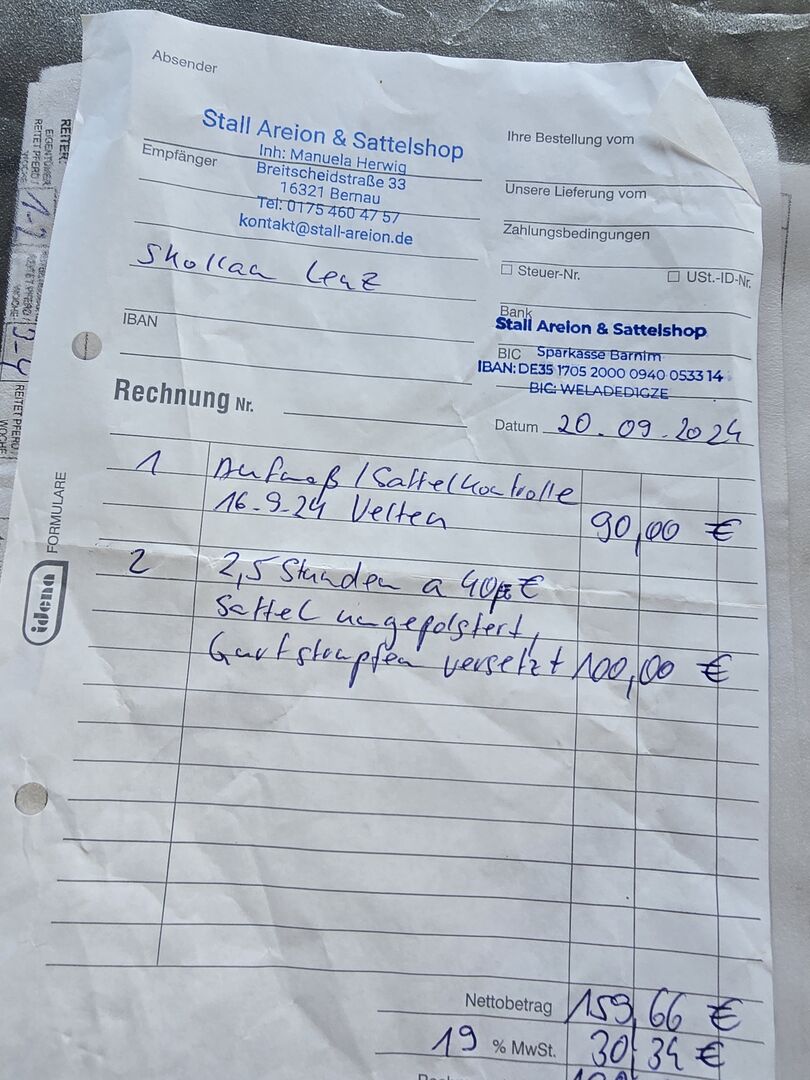 Absender
Stall Areion & Sattelshop
Inh: Manuela Herwig
Empfänger
Breitscheidstraße 33
16321 Bernau
Tel: 0175 460 47 57
kontakt@stall-areion.de
Ihre Bestellung vom
Unsere Lieferung vom
Zahlungsbedingungen
Steuer-Nr. USt.-ID-Nr.
Lenz
IBAN
Bank
Stall Areion & Sattelshop
BIC Sparkasse Barnim
IBAN: DE35 1705 2000 0940 0533 14
BIC: WELADED1GZE
Rechnung Nr.
Datum 20.09.2024
1 Aufmaß / Sattelkontrolle
16.9.24 Velten 90,00 €
2 2,5 Stunden a 40 €
Sattel umgepolstert,
Gurtstrupfen versetzt 100,00 €
Nettobetrag 159,66 €
19 % MwSt. 30,34 €
idena FORMULARE
REITER:
EIGENTÜMER
REITET PFERD /
WOCHE:
1-2
REITET PFERD /
WOCHE:
3-4
REITET PFERD /
WOCHE